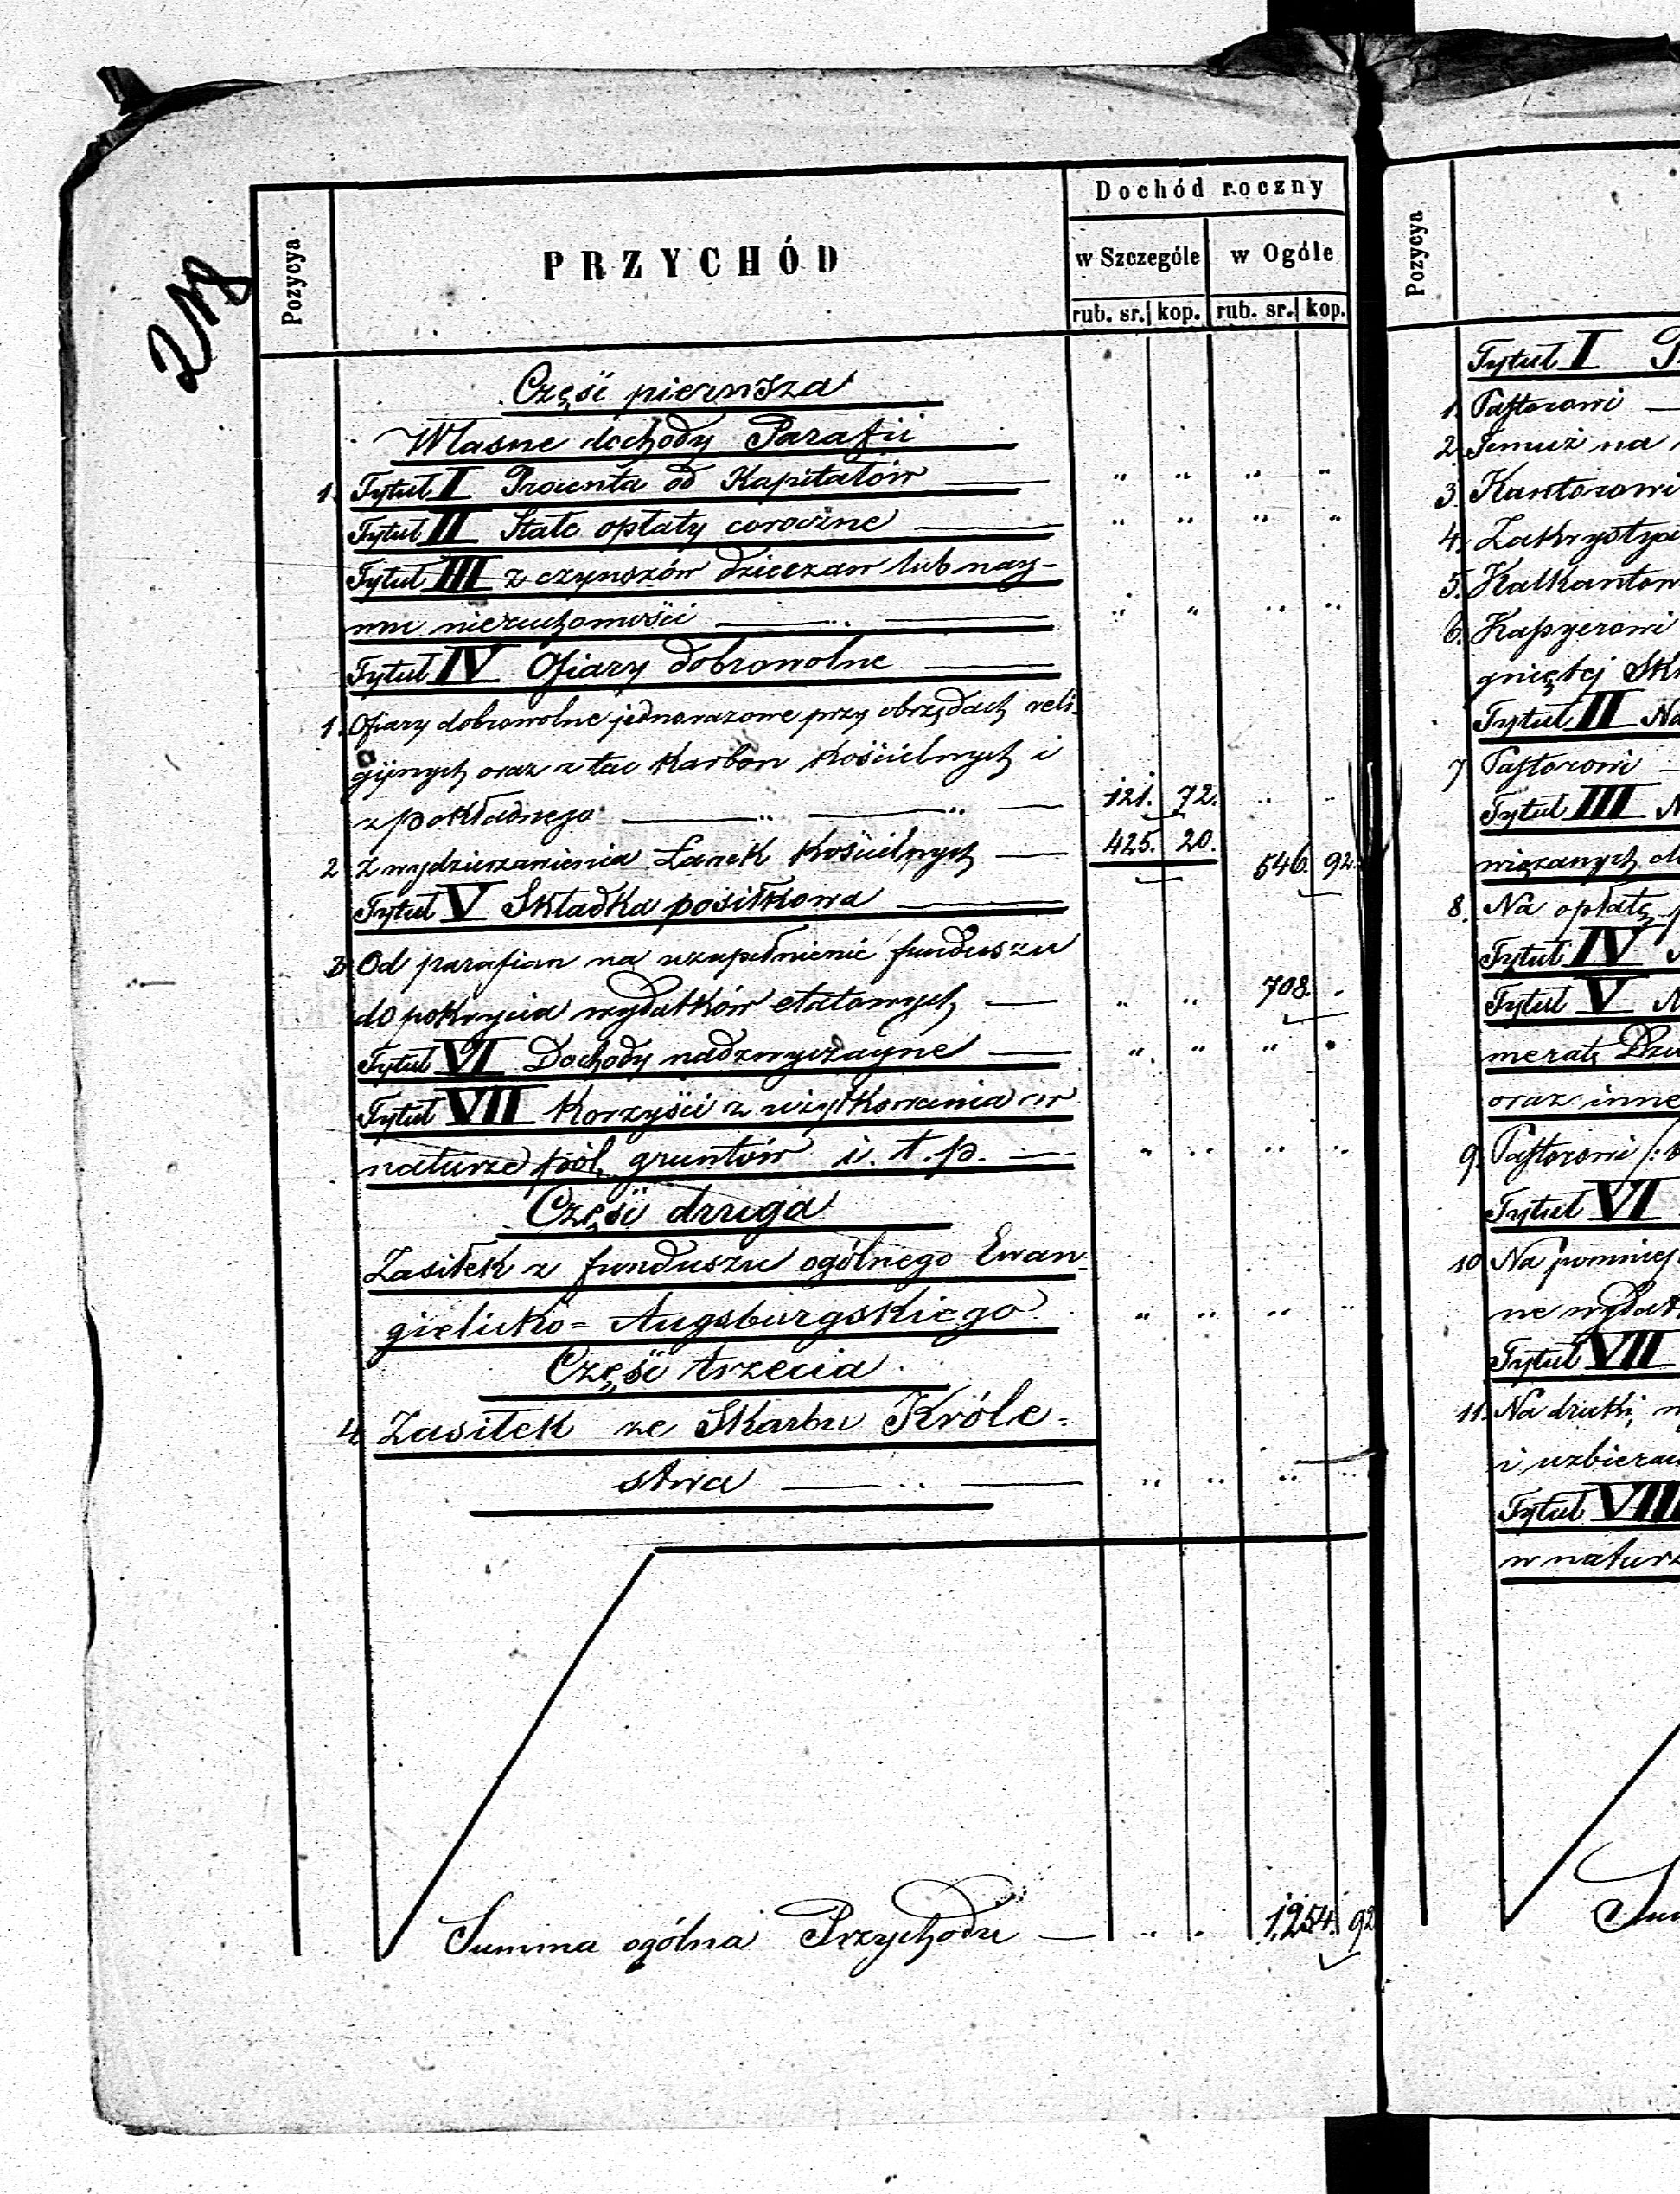 218
Pozycya
PRZYCHÓD
Dochód roczny
w Szczególe
w Ogóle
rub. sr. kop. rub. sr. kop.
Część pierwsza
Własne dochody Parafii
1. Tytuł I Procenta od Kapitałów " " " "
Tytuł II Stałe opłaty coroczne " " " "
Tytuł III z czynszów dzierżaw lub naj-
mu nieruchomości " " " "
Tytuł IV Ofiary dobrowolne
1. Ofiary dobrowolne jednorazowe przy obrzędach reli-
gijnych oraz z tac Karbon Kościelnych i
z pokładnego 121. 72. " "
2 Z wydzierżawienia Ławek Kościelnych 425. 20. 546. 92.
Tytuł V Składka posiłkowa
3 Od parafian na uzupełnienie funduszu
do pokrycia wydatków etatowych " " 708. "
Tytuł VI Dochody nadzwyczayne " " " "
Tytuł VII Korzyści z użytkowania w
naturze pól, gruntów i. t. p. " " " "
Część druga
Zasiłek z funduszu ogólnego Ewan-
gielicko = Augsburgskiego " " " "
Część trzecia
4 Zasiłek ze Skarbu Króle-
stwa " " " "
Summa ogólna Przychodu " " 1,254. 92
Pozycya
Tytuł I
1. Pastorowi
2. Temuż na
3. Kantorowi
4. Zakrystya
5. Kalkantow
6. Kassyerowi
gniętej Sk
Tytuł II Na
7 Pastorowi
Tytuł III
wiązanych
8. Na opłatę
Tytuł IV
Tytuł V
meratę
oraz inne
9. Pastorowi
Tytuł VI
10 Na pomniej
ne wydat
Tytuł VII
11. Na druki,
i uzbiera
Tytuł VIII
w naturz
Sum